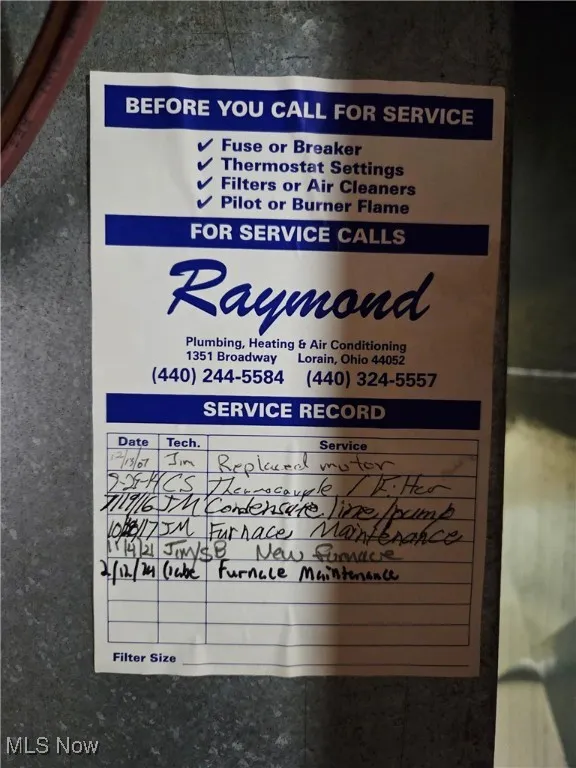 BEFORE YOU CALL FOR SERVICE
✓ Fuse or Breaker
✓ Thermostat Settings
✓ Filters or Air Cleaners
✓ Pilot or Burner Flame
FOR SERVICE CALLS
Raymond
Plumbing, Heating & Air Conditioning
1351 Broadway Lorain, Ohio 44052
(440) 244-5584 (440) 324-5557
SERVICE RECORD
Date Tech. Service
12/13/07 Jim Replaced motor
9-29-14 CS Thermocouple / Filter
7/19/16 JM Condensate line/pump
JM Furnace Maintenance
11/4/21 Jim/SB New Furnace
2/12/24 Furnace Maintenance
Filter Size
MLS Now